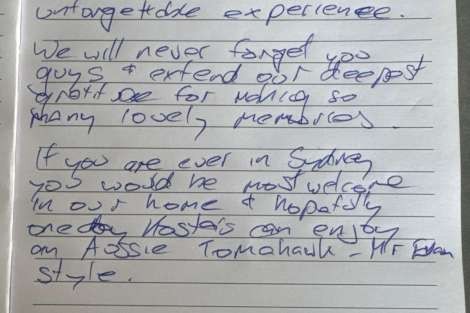 unforgettable experience.
We will never forget you
guys & extend our deepest
gratitude for making so
many lovely memories.
If you are ever in Sydney
you would be most welcome
in our home & hopefully
one day can enjoy
an Aussie Tomahawk -
style.